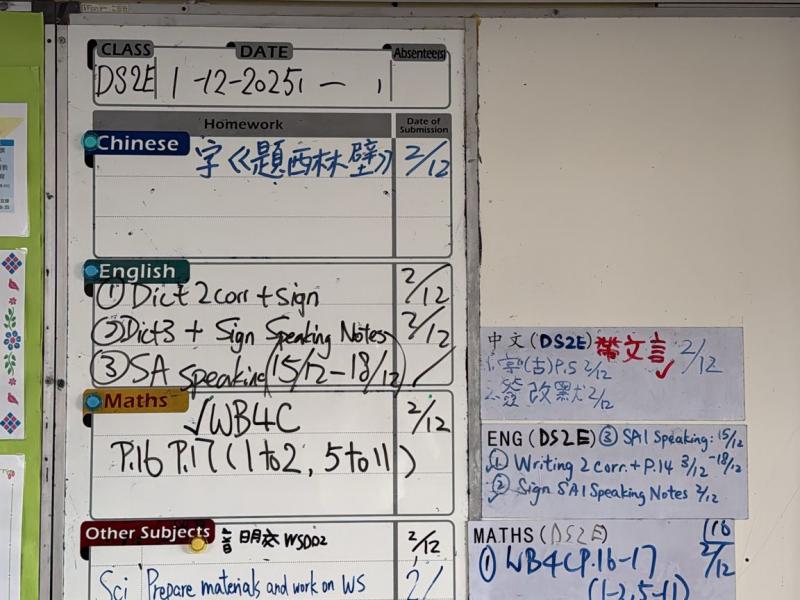 CLASS DATE Absentee(s)
DS2E 1-12-2025
Homework Date of Submission
Chinese 字《題西林壁》 2/12
English
① Dict 2 corr + sign 2/12
② Dict3 + Sign Speaking Notes 2/12
③ SA Speaking (15/12-18/12)
Maths √WB4C 2/12
P.16 P.17 (1 to 2, 5 to 11)
Other Subjects 音 明交 WS002 2/12
Sci Prepare materials and work on WS 2/
中文(DS2E) 帶文言 2/12
字(古)P.5 2/12
發改默 2/12
ENG (DS2E) ③ SA1 Speaking: 15/12-18/12
① Writing 2 corr. + P.14 3/12
② Sign SA1 Speaking Notes 2/12
MATHS (DS2E)
① WB4C P.16-17 2/12
(1-2, 5-11)